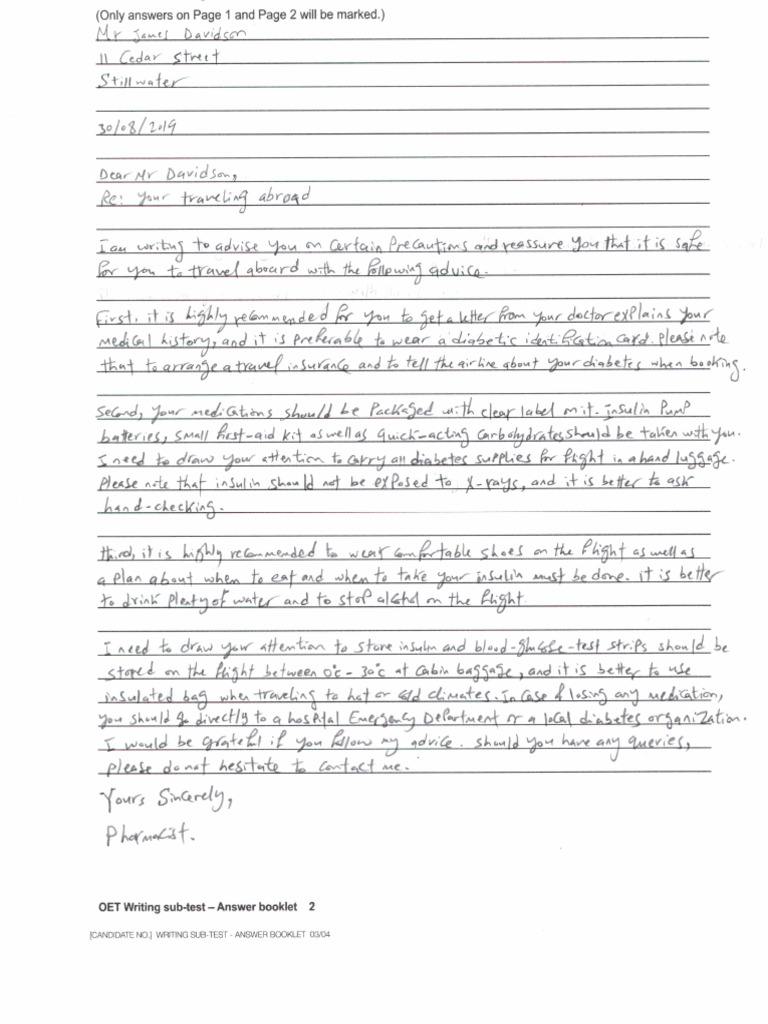 (Only answers on Page 1 and Page 2 will be marked.)
Mr James Davidson
11 Cedar Street
Stillwater
30/08/2019
Dear Mr Davidson,
Re: Your traveling abroad
I am writing to advise you on certain precautions and reassure you that it is safe
for you to travel aboard with the following advice.
First, it is highly recommended for you to get a letter from your doctor explains your
medical history, and it is preferable to wear a diabetic identification card. Please note
that to arrange a travel insurance and to tell the airline about your diabetes when booking.
Second, your medications should be packaged with clear label on it. insulin pump
batteries, small first-aid kit as well as quick-acting carbohydrates should be taken with you.
I need to draw your attention to carry all diabetes supplies for flight in a hand luggage.
Please note that insulin should not be exposed to X-rays, and it is better to ask
hand-checking.
third, it is highly recommended to wear comfortable shoes on the flight as well as
a plan about when to eat and when to take your insulin must be done. it is better
to drink plenty of water and to stop alcohol on the flight.
I need to draw your attention to store insulin and blood-glucose-test strips should be
stored on the flight between 0°c - 30°c at cabin baggage, and it is better to use
insulated bag when traveling to hot or cold climates. In case of losing any medication,
you should go directly to a hospital Emergency Department or a local diabetes organization.
I would be grateful if you follow my advice. should you have any queries,
please do not hesitate to contact me.
Yours Sincerely,
Pharmacist.
OET Writing sub-test – Answer booklet 2
[CANDIDATE NO.] WRITING SUB-TEST - ANSWER BOOKLET 03/04